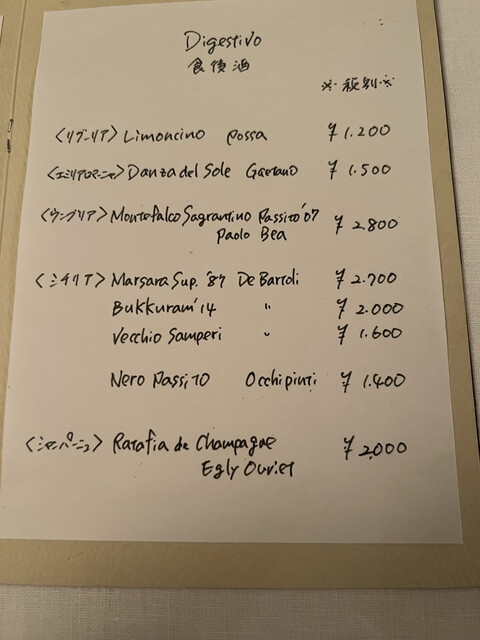 Digestivo
食後酒
※税別※
〈リグーリア〉 Limoncino Possa ¥1.200
〈エミリアロマーニャ〉 Danza del Sole Gaetano ¥1.500
〈ウンブリア〉 Montefalco Sagrantino Passito '07
Paolo Bea ¥2.800
〈シチリア〉 Marsara Sup. '87 De Bartoli ¥2.700
Bukkuram '14 〃 ¥2.000
Vecchio Samperi 〃 ¥1.600
Nero Passito Occhipinti ¥1.400
〈シャンパーニュ〉 Ratafia de Champagne
Egly Ouriet ¥2.000